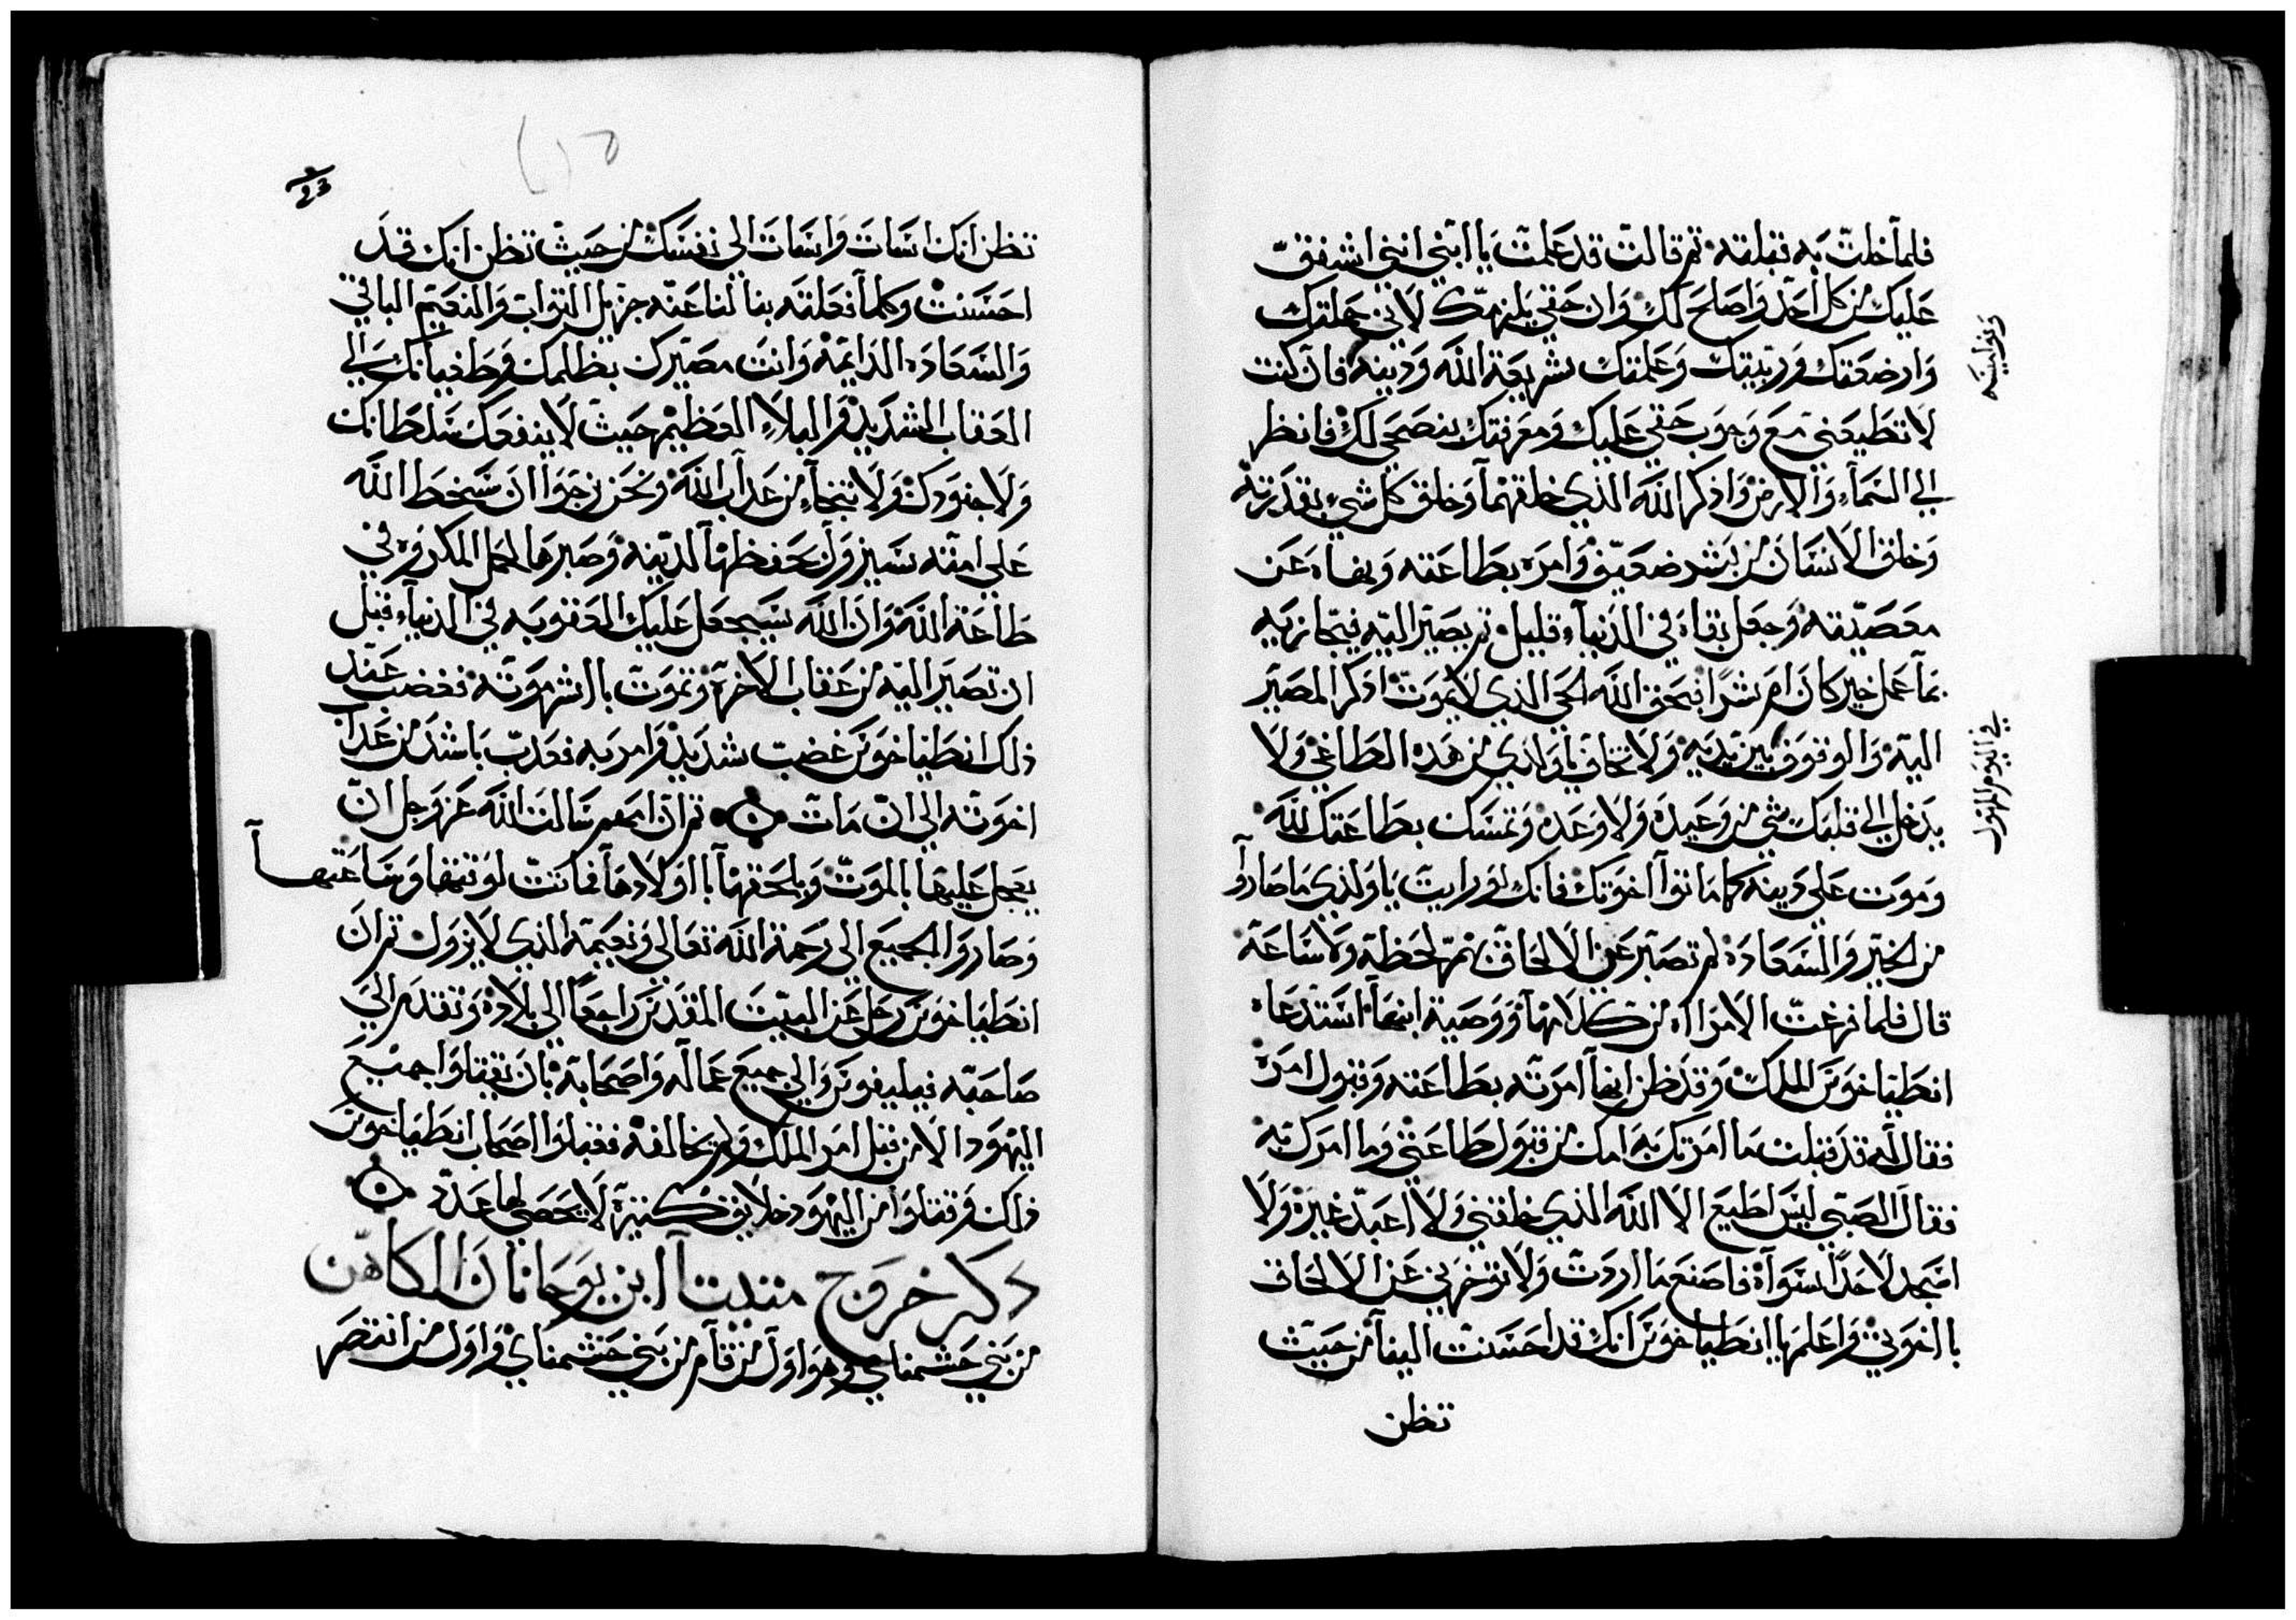 فلما خلت به تقلقه ثم قالت قد علمت يا ابني انني اشفق
عليك من كل احد واصلح لك وان حقي يلزمك لانني حملتك
وارضعتك وربيتك وعلمتك شريعة الله ودينه فان كنت
لا تطيعني مع وجوب حقي عليك ومعرفتك بنصحي لك فانظر
الي السماء والارض واذكر الله الذي خلقهما وخلق كل شيء بقدرته
وخلق الانسان من بشر ضعيف وامره بطاعته ونهاه عن
معصيته وجعل بقاه في الدنياء قليل ثم يصير اليه فيجازيه
بما عمل خير كان ام شرا فبحق الله الحي الذي لا يموت اذكر المصير
اليه والوقوف بين يديه ولا تخاف يا ولدي من هذه الطاغي ولا
يدخل الي قلبك شي من وعيده ولا وعده وتمسك بطاعتك لله
وموت علي دينه كما ماتوا اخوتك فانك لو رايت يا ولدي ما صاروا
من الخير والسعاده لم تصبر عن الالحاق بهم لحظة ولا ساعة
قال فلما فرغت الامراه من كلامها ووصية ابنها استدعاه
انطياخوس الملك وقد ظن انها امرته بطاعته وقبول امره
فقال له قد قبلت ما امرتك به امك من قبول طاعتي وما امرك به
فقال الصبي ليس اطيع الا الله الذي خلقني ولا اعبد غيره ولا
اسجد لاحدا سواه فاصنع ما اردت ولا توخرني عن الالحاق
باخوتي واعلم يا انطياخوس انك قد احسنت الينا من حيث
تظن
في اليوم المهول
تظن انك اسات واسات الي نفسك من حيث تظن انك قد
احسنت وكلما فعلته بنا لنا عنه جزيل الثواب والنعيم الباقي
والسعاده الدايمة وانت مصيرك بظلمك وطغيانك الي
العقاب الشديد والبلاء العظيم حيث لا ينفعك سلطانك
ولا جنودك ولا تنجاء من عذاب الله ونحن نرجوا ان سخط الله
علي امته يسير وان حفظها لدينه وصبرها لحمل المكروه في
طاعة الله وان الله سيجعل عليك العقوبه في الدنياء قبل
ان تصير اليه من عقاب الاخرة وتموت باشر موته فغضب عند
ذلك انطياخوس غضب شديد وامر به فعذب باشد من عذاب
اخوته الي ان مات ثم ان امهم سالت الله عز وجل ان
يعجل عليها بالموت ويلحقها باولادها فماتت لوقتها وساعتها
وصاروا الجميع الي رحمة الله تعالي ونعيمه الذي لا يزول ثم ان
انطياخوس رحل عن البيت المقدس راجعا الي بلاده وتقدم الي
صاحبه فيليفوس والي جميع عماله واصحابه بان يقتلوا جميع
اليهود الا من قبل امر الملك ولم يخالفه ففعلوا اصحاب انطياخوس
ذلك وقتلوا من اليهود خلايق كثيرة لا تحصي لها عدة
ذكر خروج متتيا ابن يوحانان الكاهن
من بني حشمناي وهو اول من قام من بني حشمناي واول من انتصر